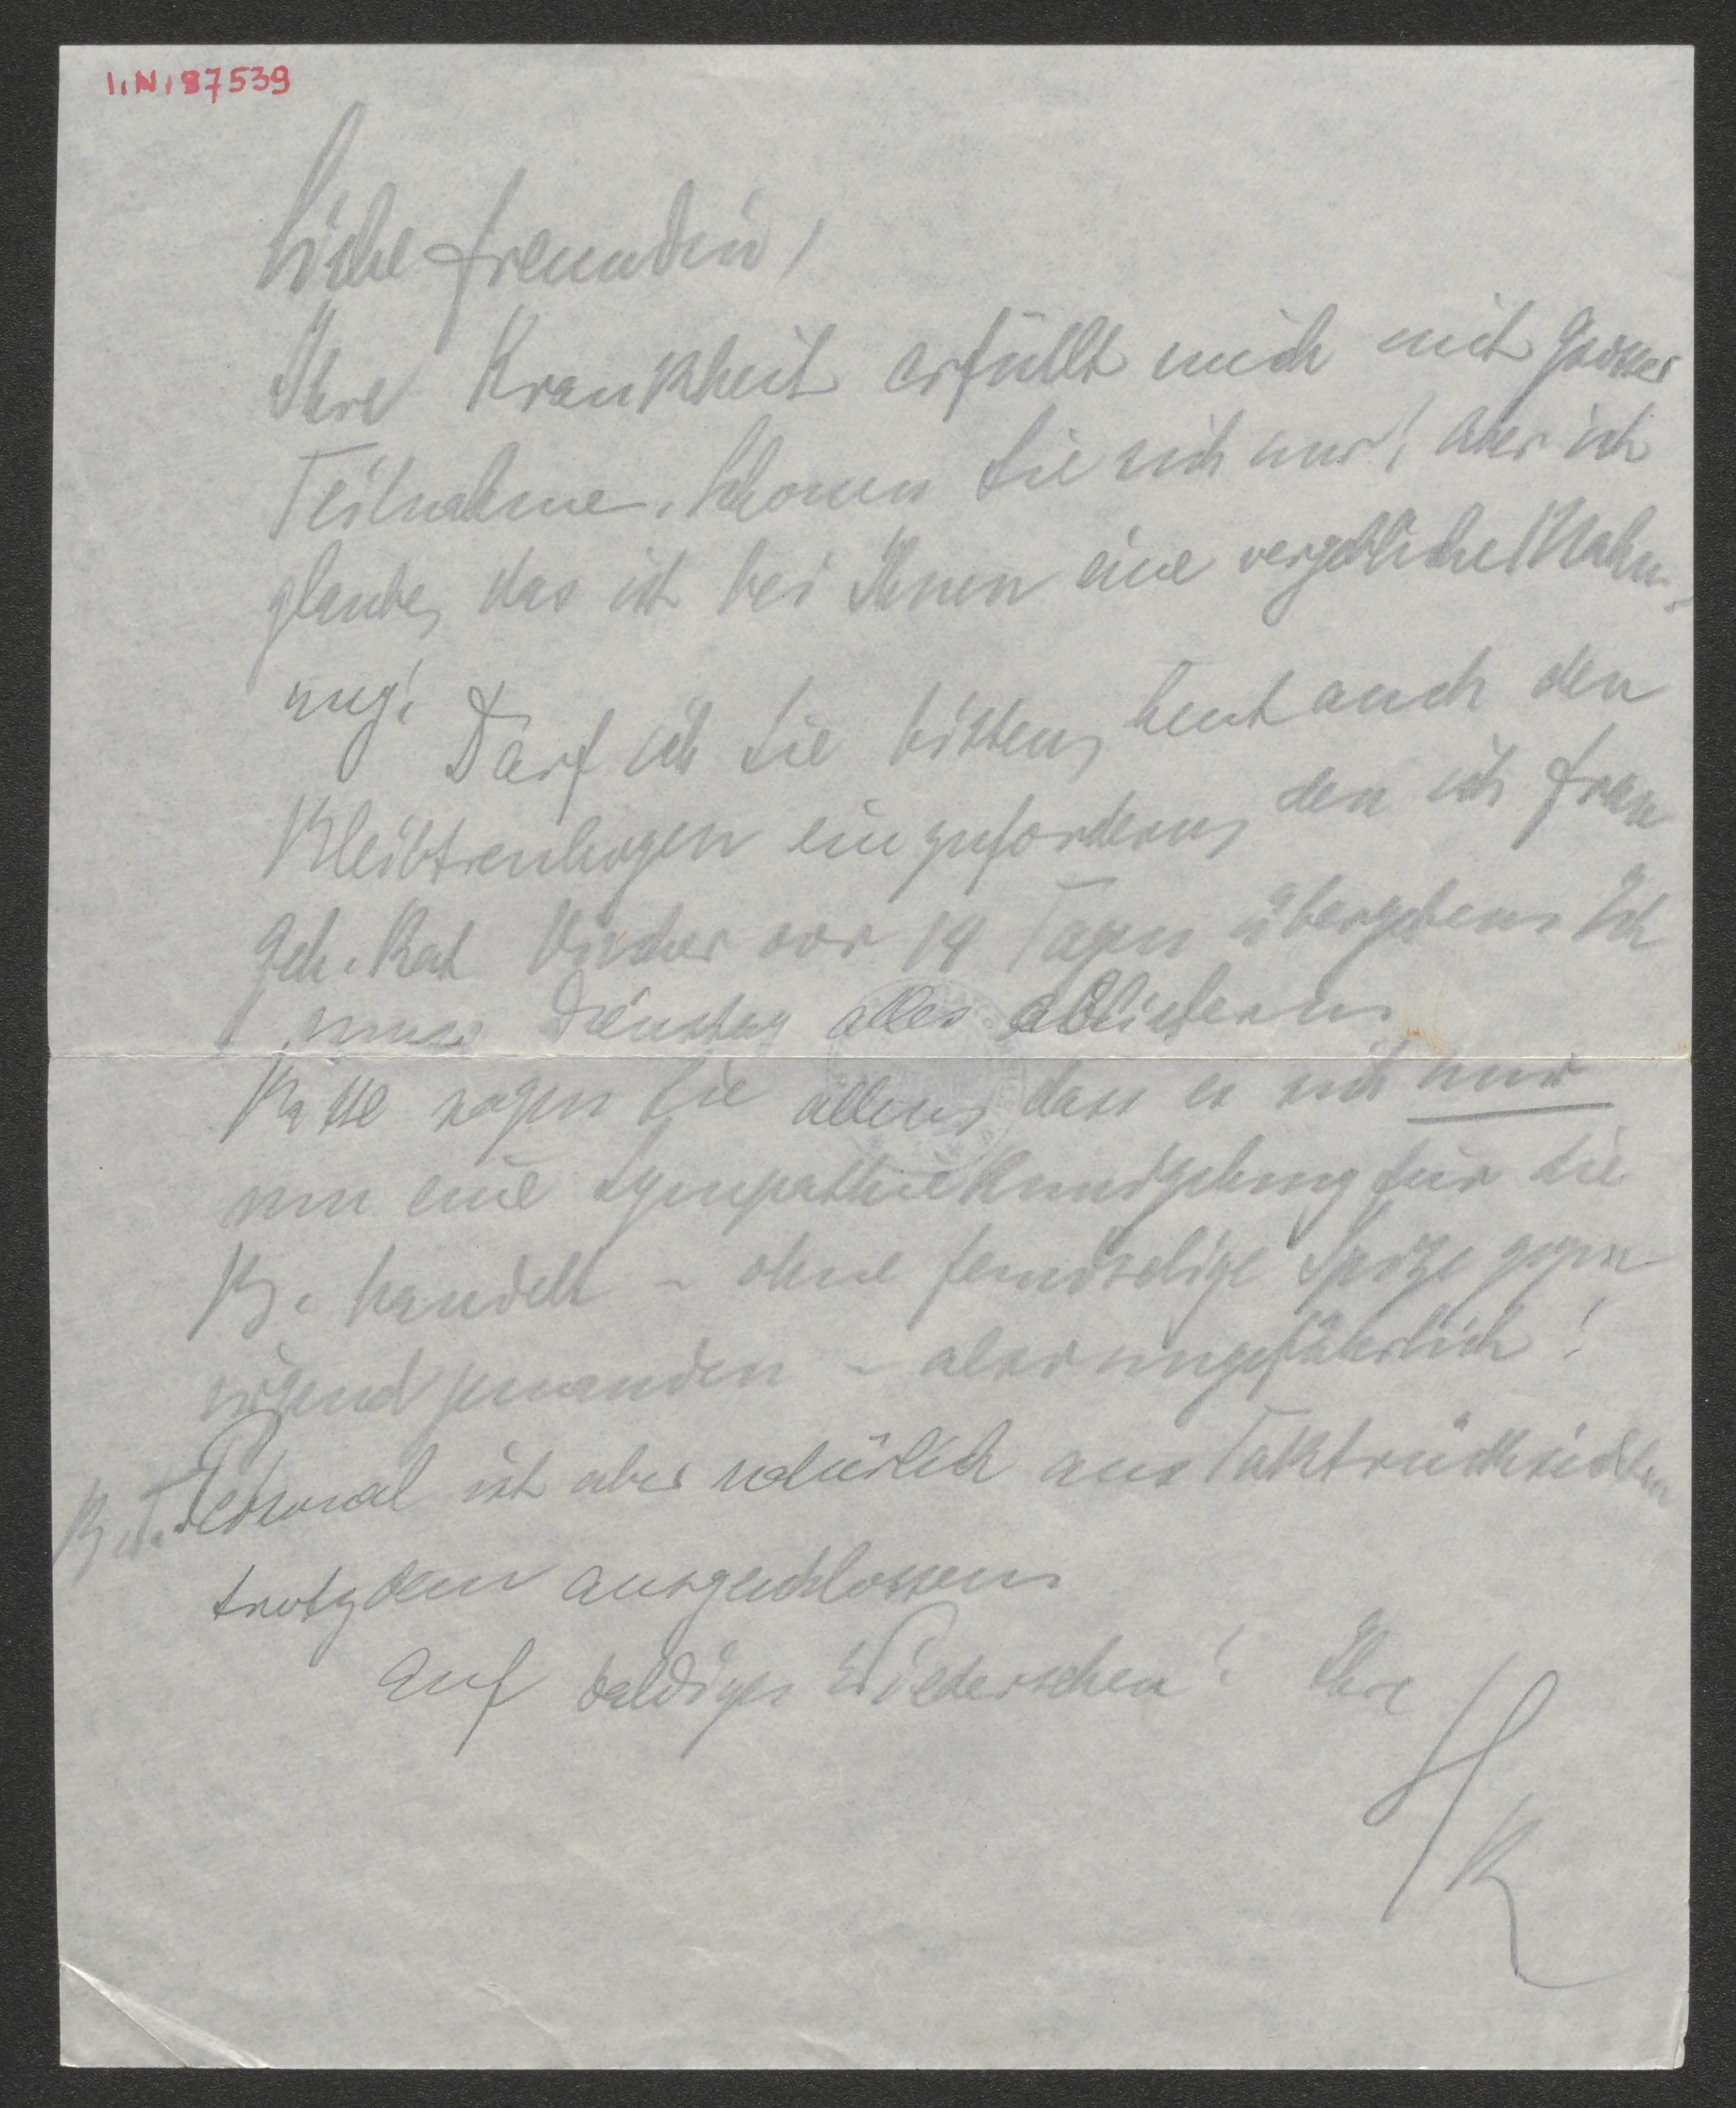 I.N. 87539
Liebe Freundin,
Ihre Krankheit erfüllt mich mit grosser
Teilnahme. Schonen Sie sich nur! Aber ich
glaube, das ist bei Ihnen eine vergebliche Mahn-
ung!
Darf ich Sie bitten, heut auch den
Kleibtreubogen einzufordern, den ich Frau
Geh. Rat vor 14 Tagen übergeben. Ich
muss Dienstag alles abliefern.
Bitte sagen Sie allen, dass es sich nur
um eine Sympathiekundgebung für die
B. handelt – ohne feindselige Spitze gegen
irgend jemanden – also ungefährlich!
B. T. Personal ist aber natürlich aus Taktrücksichten
trotzdem ausgeschlossen.
Auf baldiges Wiedersehen! Ihre
HK